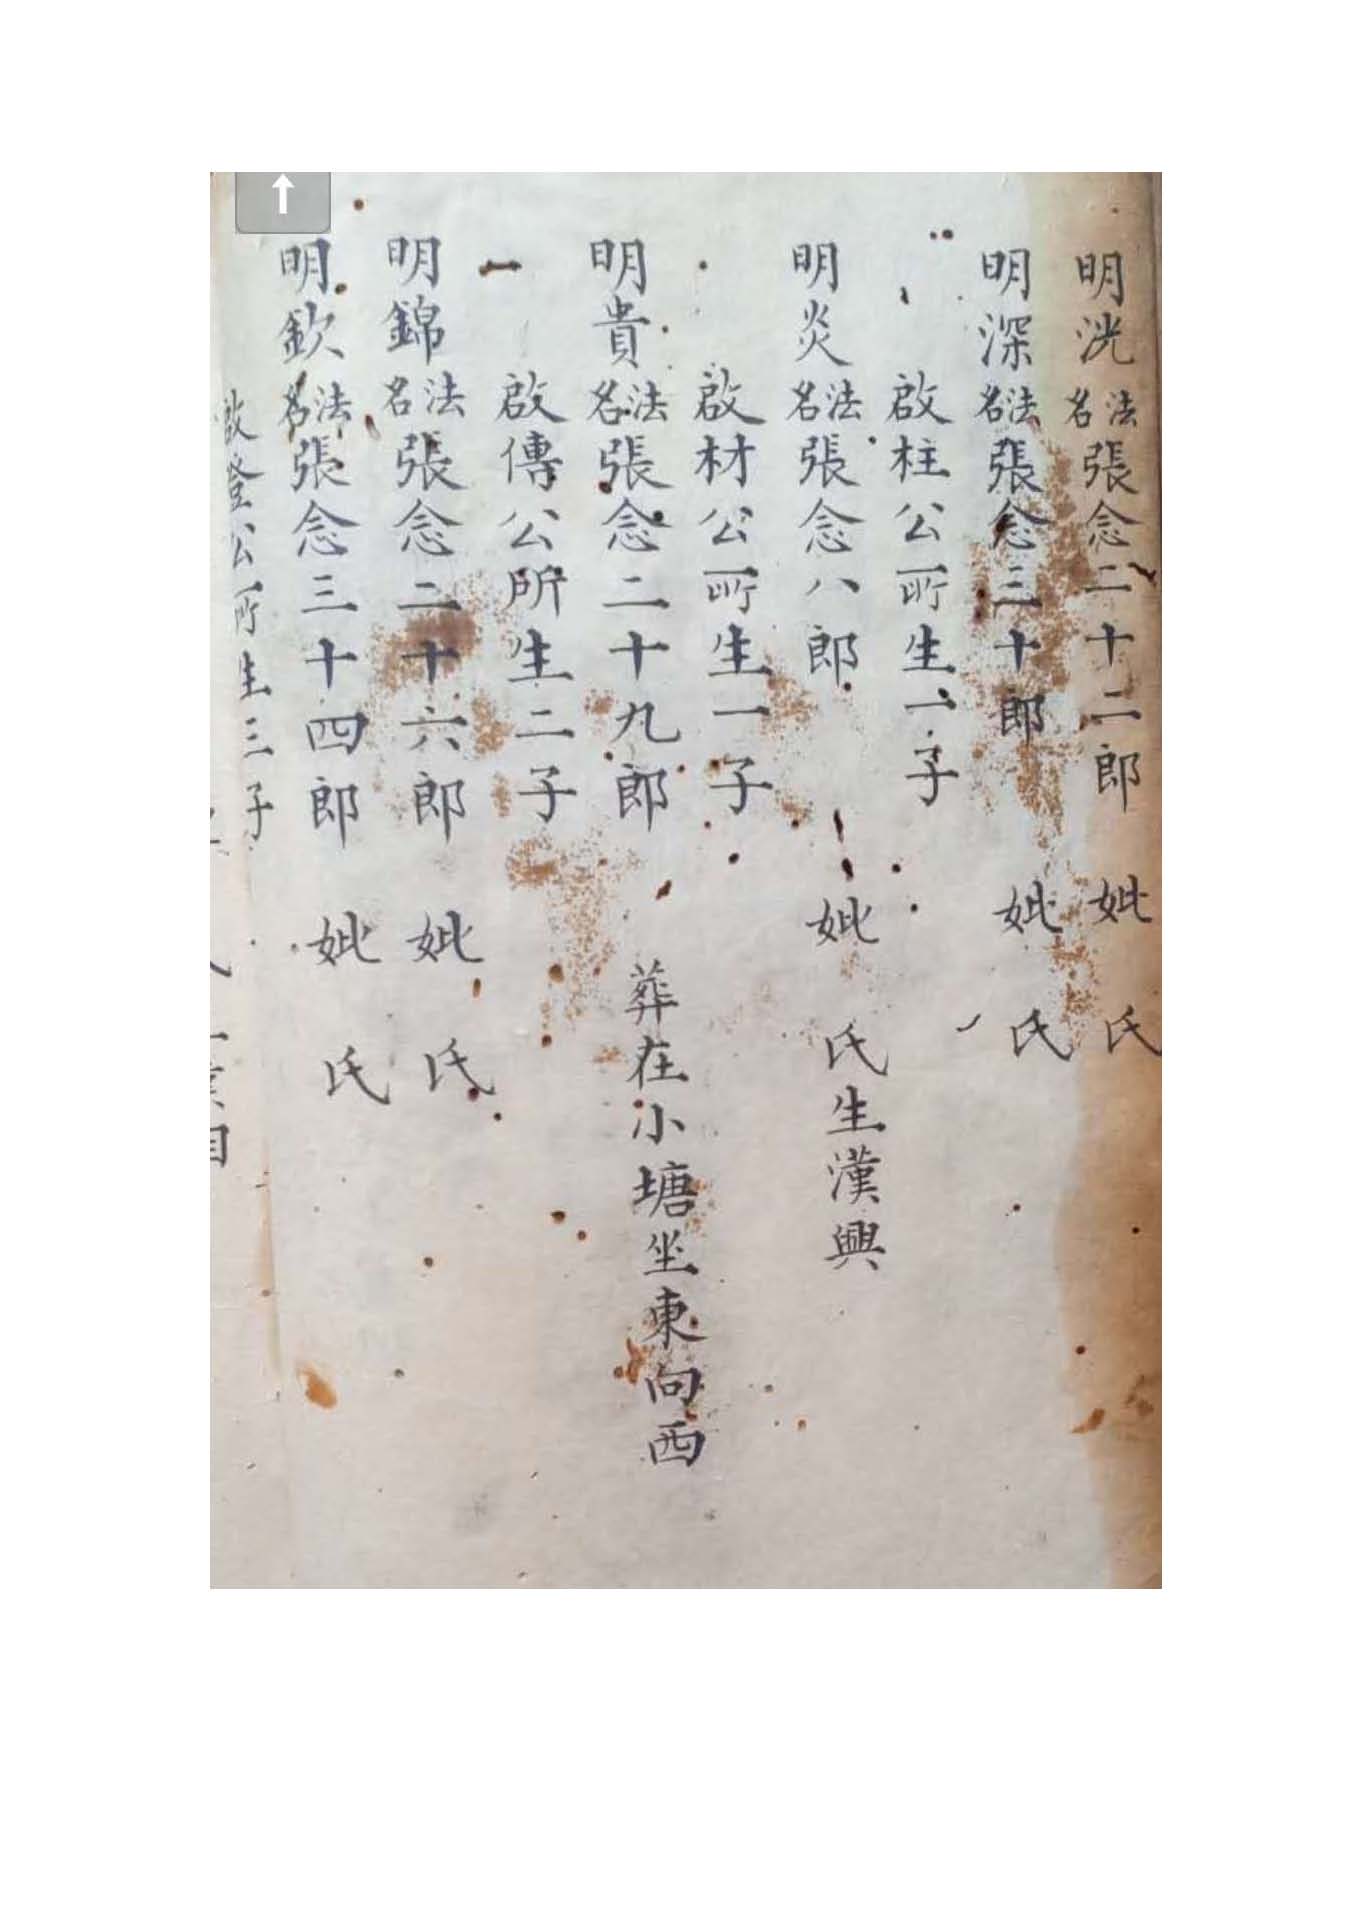 明洸法名張念二十二郎 妣 氏
明深法名張念三十郎 妣 氏
啟柱公所生一子
明炎法名張念八郎 妣 氏生漢興
啟材公所生一子
明貴法名張念二十九郎 葬在小塘坐東向西
啟傳公所生二子
明錦法名張念二十六郎 妣 氏
明欽法名張念三十四郎 妣 氏
啟登公所生三子